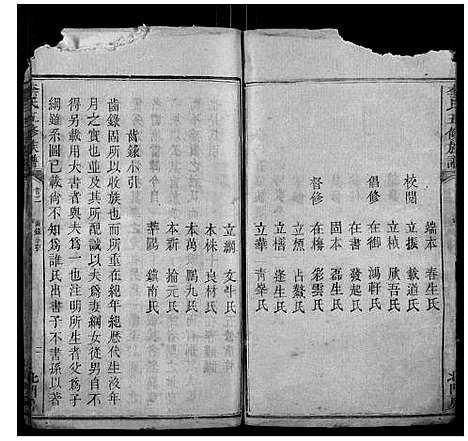 端本 春生氏
校閱 立振 載道氏
立楨 欣吾氏
倡修 在御 鴻軒氏
在書 發起氏
固本 磊生氏
督修 在梅 彩雲氏
立焦 占鰲氏
立榗 逢生氏
立華 青峯氏
立綱 文斗氏
本株 良材氏
本萬 鵬九氏
本新 掄元氏
華國 鎮南氏
齒錄小引
齒錄固所以收族也而所重在紀年紀歷代生沒年
月之實也並及其所配誠以夫爲妻綱女從男自不
得另載用大書者與夫爲一也注明所生者父爲子
綱雖系圖已載尚不知爲誰氏出書子不書孫以著
李氏五修族譜
卷二
齒錄小引
李氏五修族譜